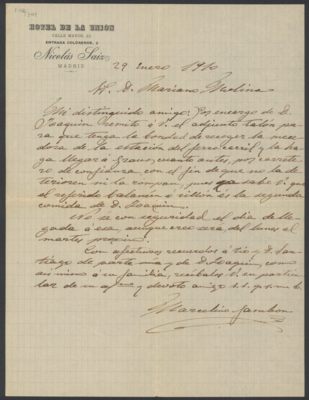 HOTEL DE LA UNION
CALLE MAYOR, 33
ENTRADA COLOREROS, 2
Nicolás Saiz
MADRID
29 enero 1910
Sr. D. Mariano Molina
Mi distinguido amigo: Por encargo de D.
Joaquín remito á V. el adjunto talón pa-
ra que tenga la bondad de recoger la mece-
dora de la estación del ferrocarril y la ha-
ga llegar á Graus, cuanto antes, por carrete-
ro de confianza con el fin de que no la de-
terioren ni la rompan, pues ya sabe V. que
el referido balancín ó sillón es la segunda
comida de D. Joaquín.
No se con seguridad el día de lle-
gada á esa, aunque creo sera del lunes al
martes proximo.
Con afectuosos recuerdos á tio D. San-
tiago de parte mia y de D. Joaquín, como
asi mismo á su familia, recibalos V. en particu-
lar de su af.mo y devoto amigo s.s. q. s. m. b.
Marcelino Gambon